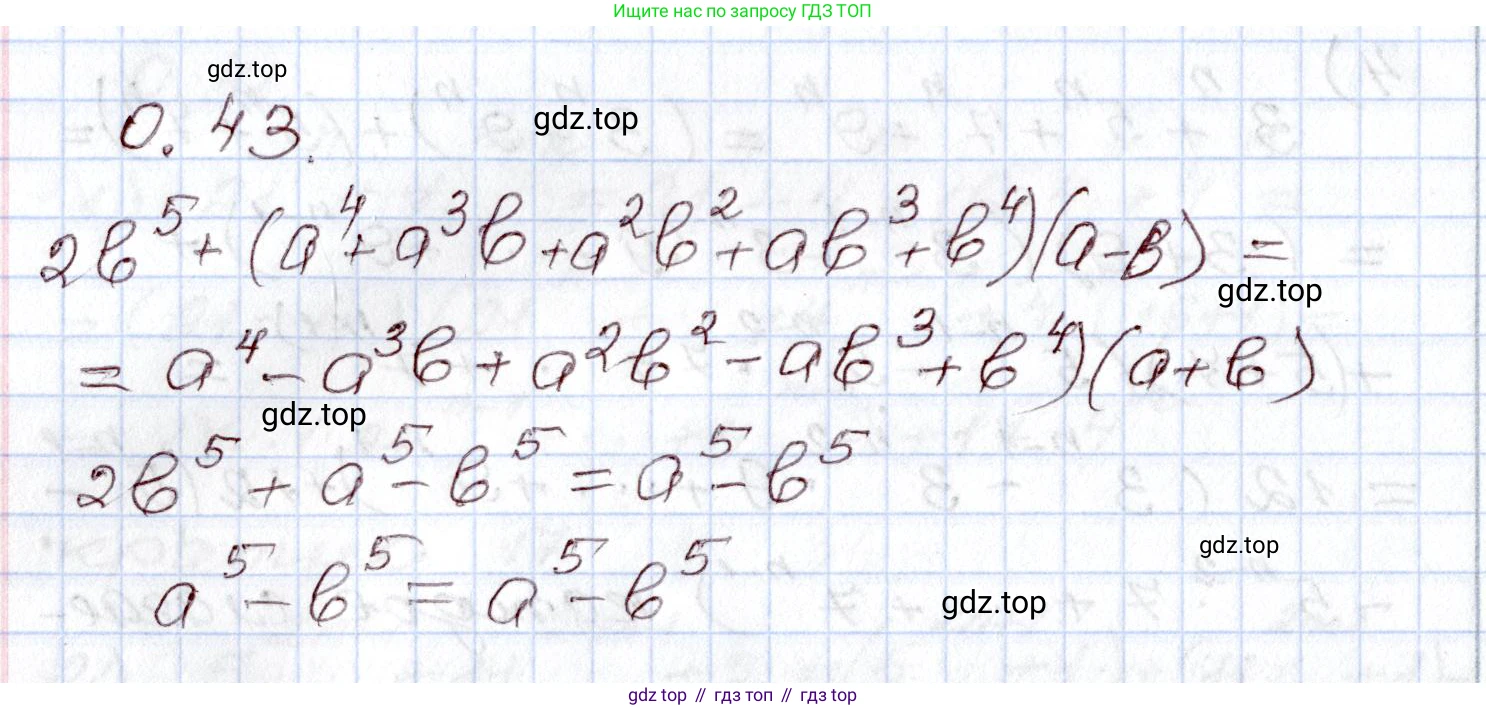 Ищите нас по запросу ГДЗ ТОП
gdz.top
0.43.
gdz.top
2b⁵+(a⁴+a³b+a²b²+ab³+b⁴)(a-b)=
gdz.top
=a⁴-a³b+a²b²-ab³+b⁴)(a+b)
gdz.top
2b⁵+a⁵-b⁵=a⁵-b⁵
gdz.top
a⁵-b⁵=a⁵-b⁵
gdz.top
gdz top // гдз топ // gdz top